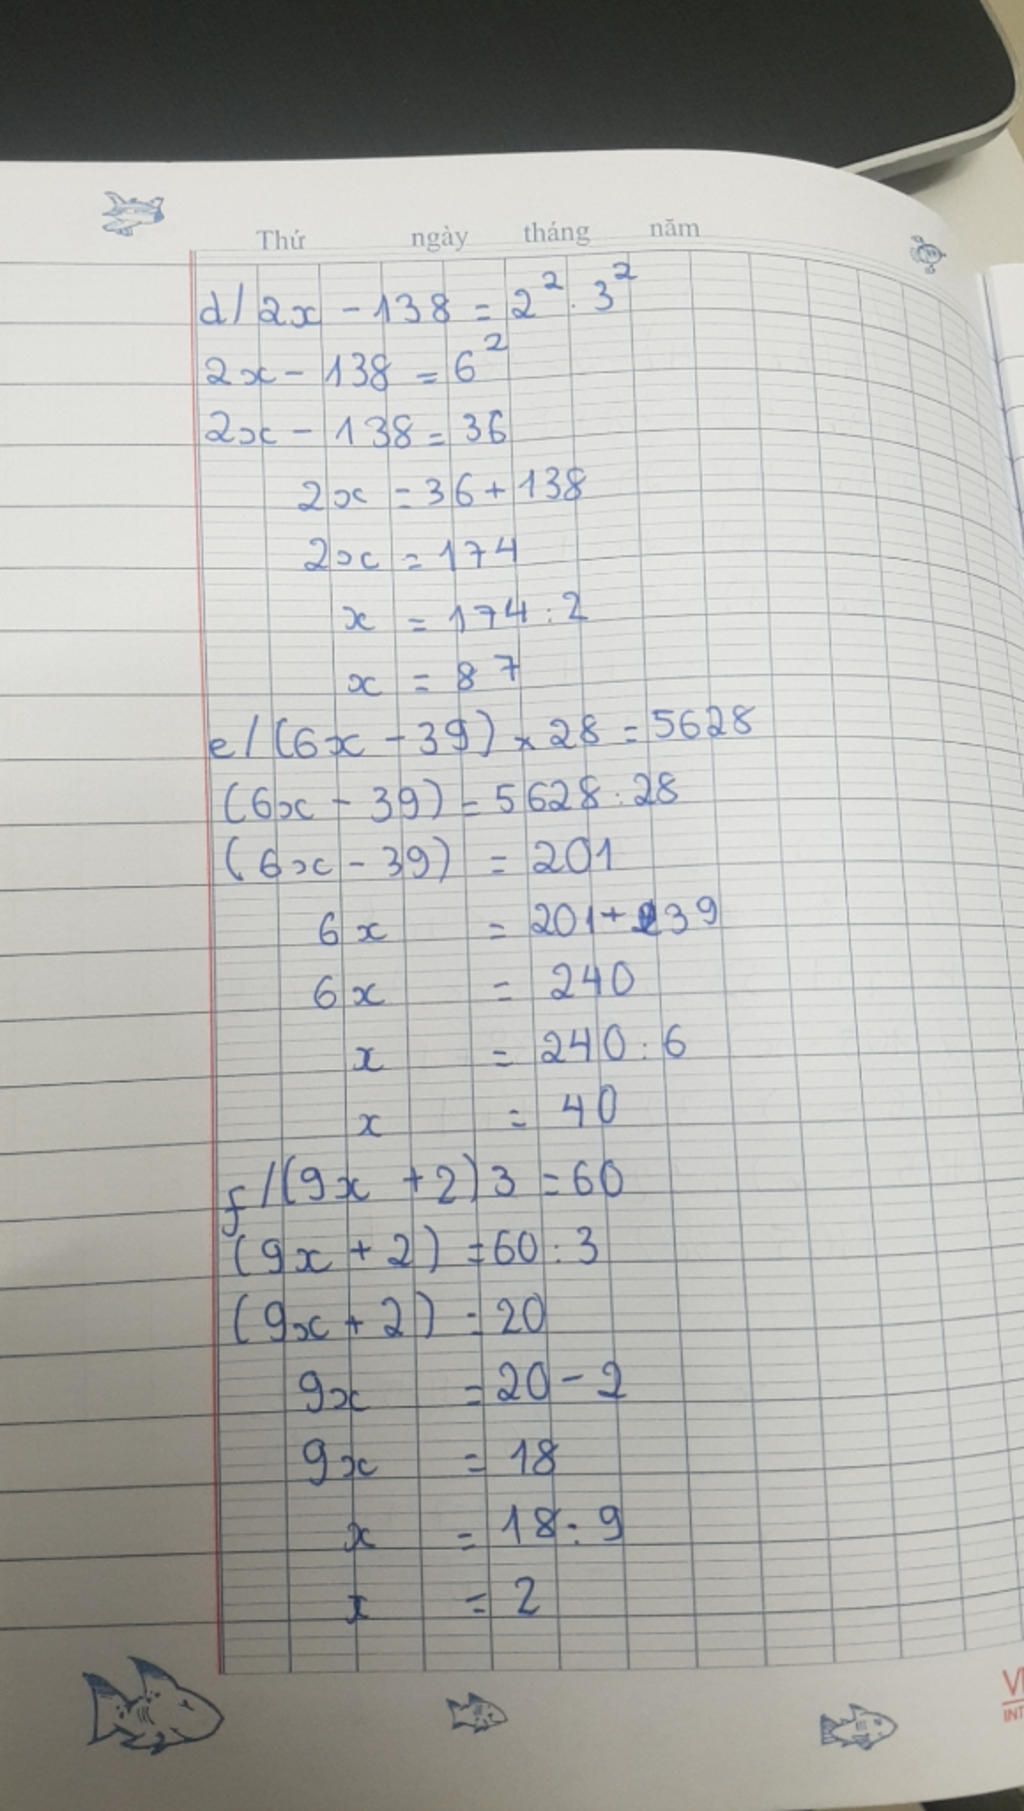 Thứ ngày tháng năm
d/ 2x - 138 = 2² . 3²
2x - 138 = 6²
2x - 138 = 36
2x = 36 + 138
2x = 174
x = 174 : 2
x = 87
e/ (6x - 39) × 28 = 5628
(6x - 39) = 5628 : 28
(6x - 39) = 201
6x = 201 + 39
6x = 240
x = 240 : 6
x = 40
f/ (9x + 2) 3 = 60
(9x + 2) = 60 : 3
(9x + 2) = 20
9x = 20 - 2
9x = 18
x = 18 : 9
x = 2